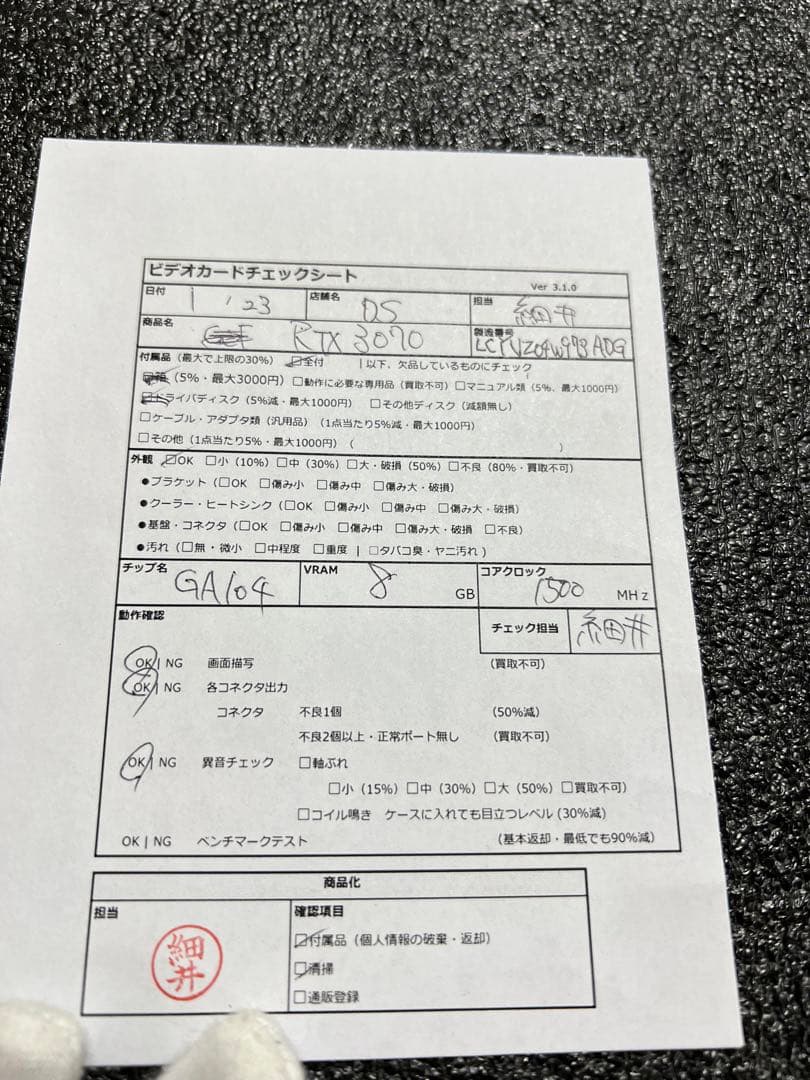 ビデオカードチェックシート
Ver 3.1.0
日付 1 '23 店舗名 DS 担当 細井
商品名 RTX 3070 製造番号
付属品（最大で上限の30%） ☑全付 | 以下、欠品しているものにチェック
箱（5%・最大3000円）□動作に必要な専用品（買取不可）□マニュアル類（5%、最大1000円）
ドライバディスク（5%減・最大1000円） □その他ディスク（減額無し）
□ケーブル・アダプタ類（汎用品）（1点当たり5%減・最大1000円）
□その他（1点当たり5%・最大1000円）（ ）
外観 ☑OK □小（10%）□中（30%）□大・破損（50%）□不良（80%・買取不可）
●ブラケット（□OK □傷み小 □傷み中 □傷み大・破損）
●クーラー・ヒートシンク（□OK □傷み小 □傷み中 □傷み大・破損）
●基盤・コネクタ（□OK □傷み小 □傷み中 □傷み大・破損 □不良）
●汚れ（□無・微小 □中程度 □重度 | □タバコ臭・ヤニ汚れ）
チップ名 GA104 VRAM 8 GB コアクロック 1500 MHz
動作確認
チェック担当 細井
OK | NG 画面描写 （買取不可）
OK | NG 各コネクタ出力
コネクタ 不良1個 （50%減）
不良2個以上・正常ポート無し （買取不可）
OK | NG 異音チェック □軸ぶれ
□小（15%）□中（30%）□大（50%）□買取不可）
□コイル鳴き ケースに入れても目立つレベル（30%減）
OK | NG ベンチマークテスト （基本返却・最低でも90%減）
商品化
担当 確認項目
細井
☑付属品（個人情報の破棄・返却）
☑清掃
□通販登録